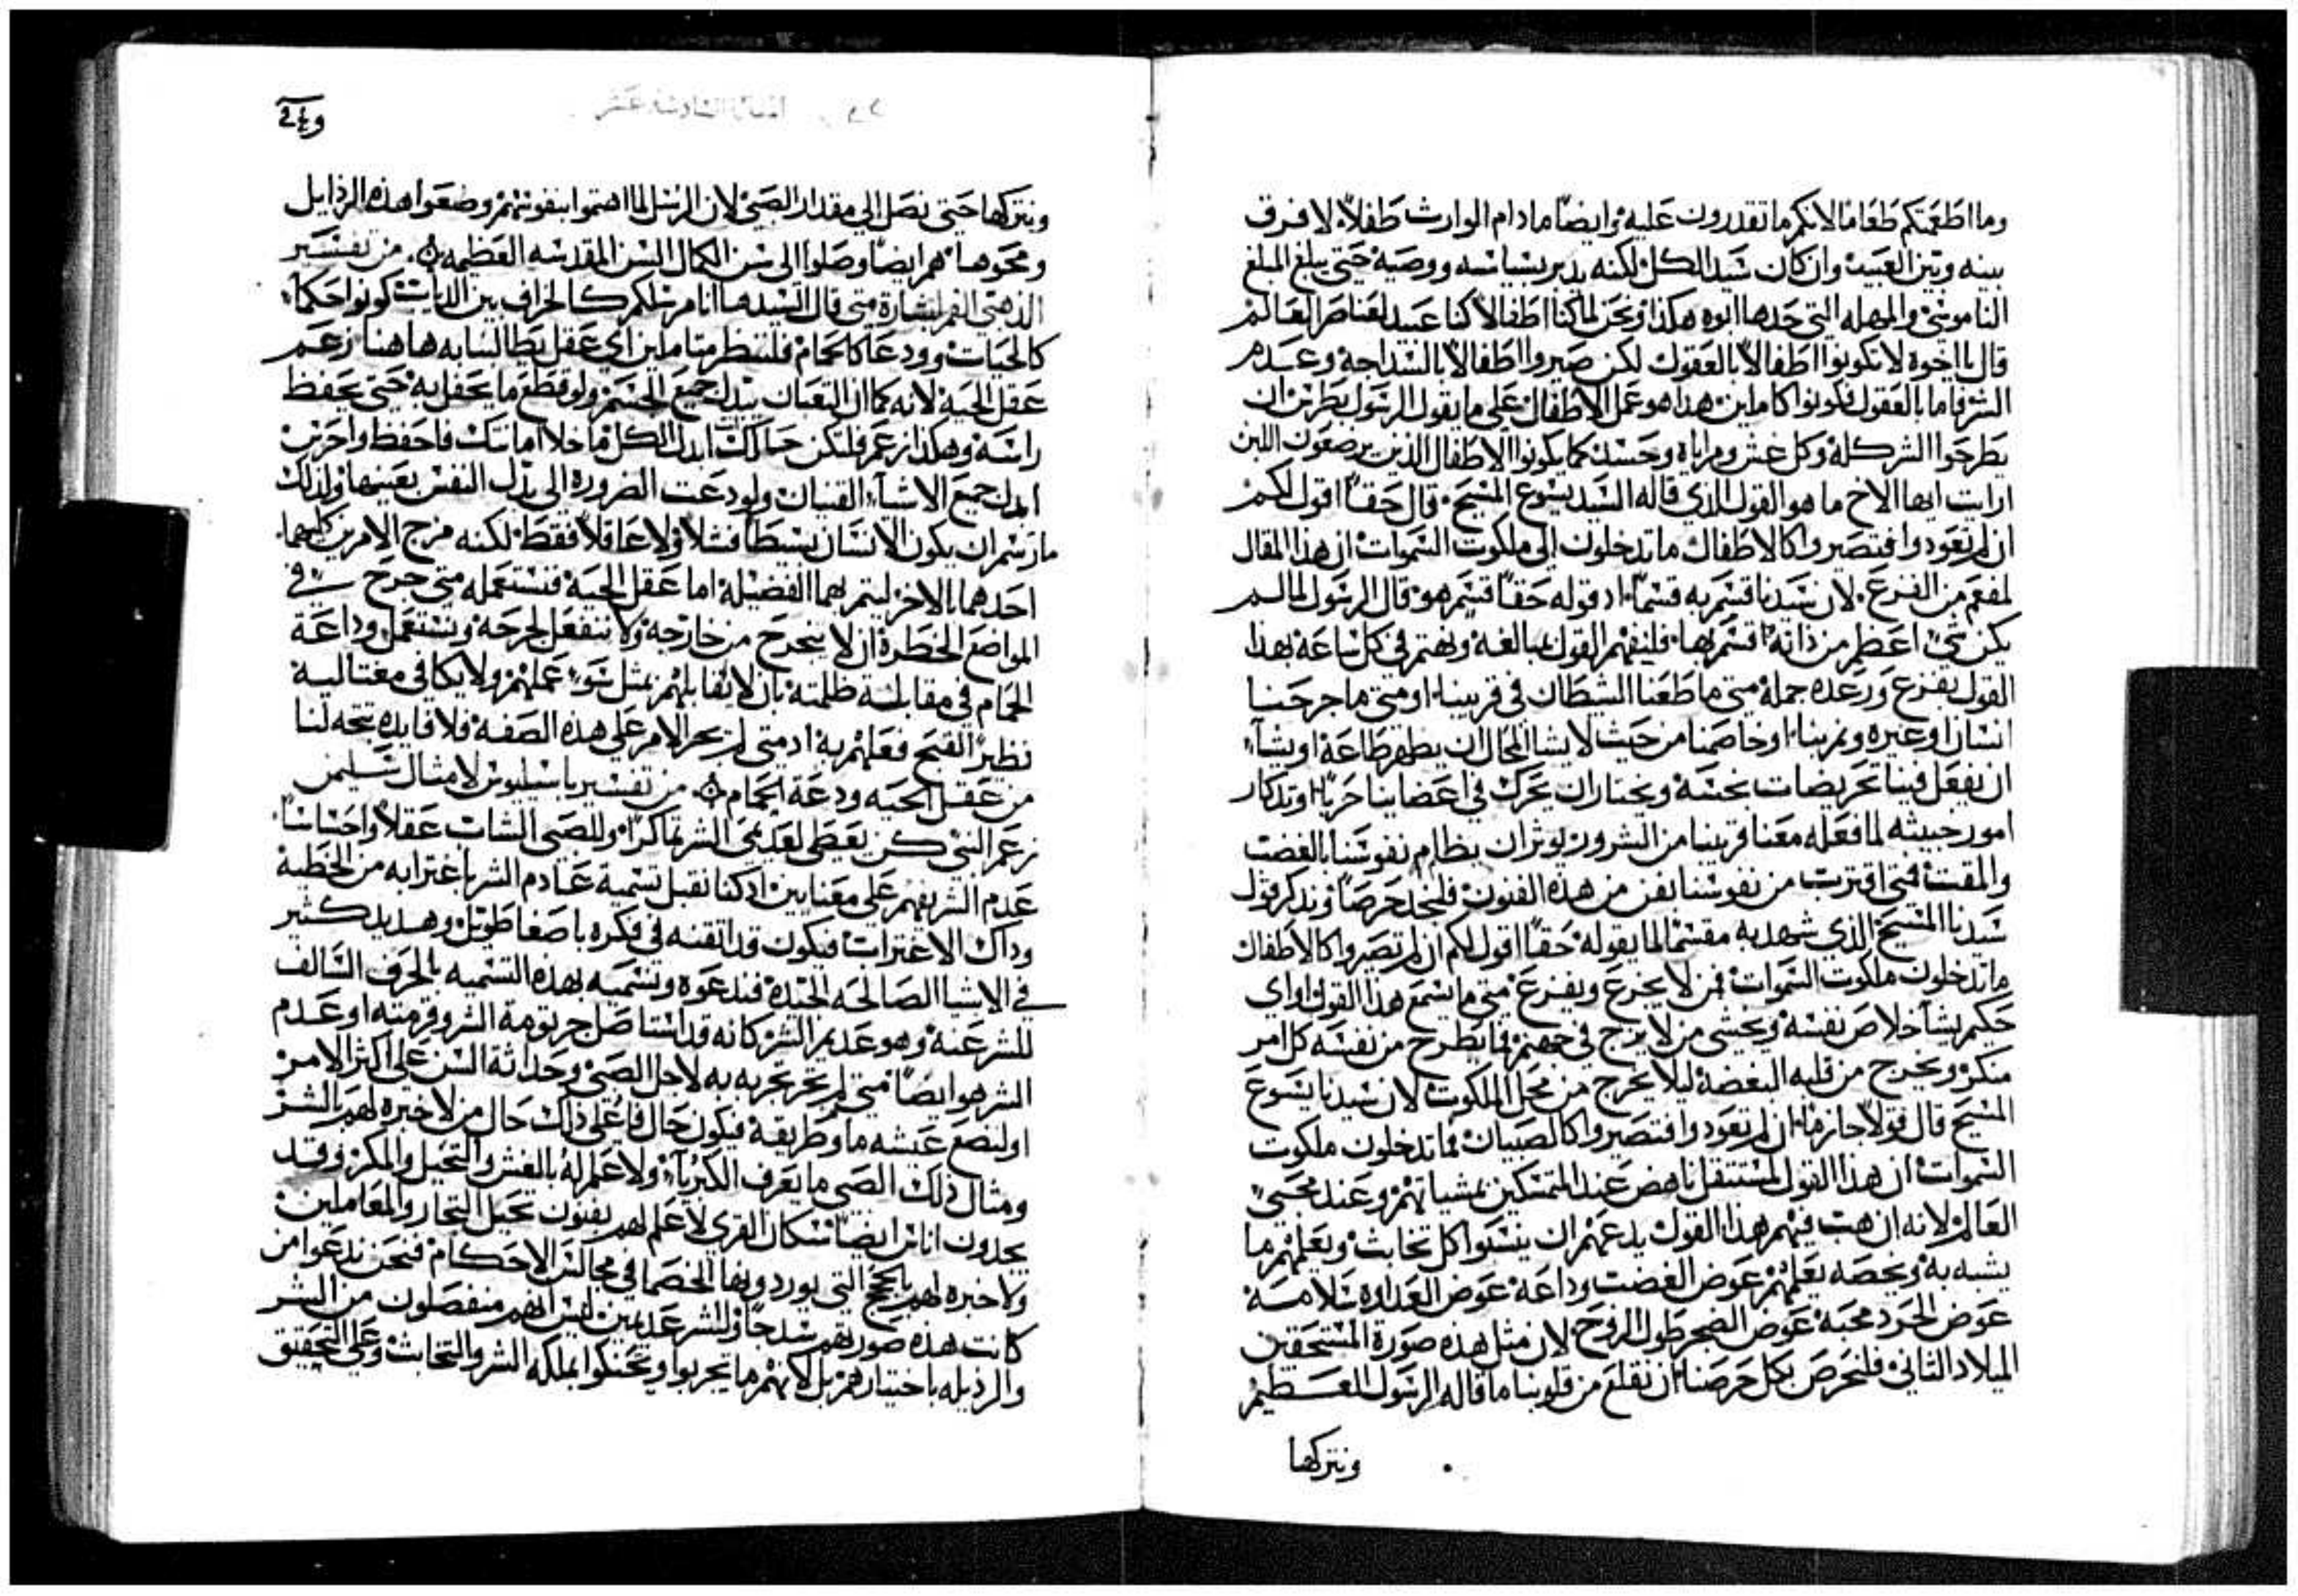 وما اطعمتكم طعاما لانكم ما تقدرون عليه وايضًا مادام الوارث طفلاً لا فرق
بينه وبين العبيد وان كان سيد الكل لكنه يدبر بسياسه ووصيه حتى يبلغ المبلغ
الناموسي والمهله التي حدها ابوه هكذا ونحن لما كنا اطفالا كنا عبيد لعناصر العالم
قال يا اخوه لا تكونوا اطفالاً بالعقول لكن صيروا اطفالاً بالسداجة وعدم
الشر فاما بالعقول فكونوا كاملين هذا هو عمل الاطفال على ما يقول الرسول بطرس ان
يطرحوا الشر كله وكل غش ومراياه وحسد كما يكونوا الاطفال الذين يرضعون اللبن
ارايت ايها الاخ ما هو القول الذي قاله السيد يسوع المسيح قال حقاً اقول لكم
ان لم تعودوا فتصيروا كالاطفال ما تدخلون الى ملكوت السموات ان هذا المقال
لمفعم من الفزع لان سيدنا قسم به قسمًا اد قوله حقاً قسم هو قال الرسول لما لم
يكن شي اعظم من ذاته اقسم بها فليفهم القول بمبالغه ونهتم في كل ساعة بهذا
القول بفزع ورعده جملة متى ما طغنا الشيطان في قريبنا او متى ما جرحنا
انسان او عيره ونمر بنا او خاصمنا من حيث لا يشا المحال ان يظهر طاعة او يشاء
ان يفعل فينا تحريضات بخسه ويختار ان يحرك في اعضاينا حربا او تدكار
امور خبيثه لما فعله معنا قريبنا من الشرور يوثر ان يظلم نفوسنا بالغضب
والمقت فمتى اقتربت من نفوسنا نفن من هذه الفنون فلنجد حرصا ونذكر قول
سيدنا المسيح الذي شهد به مقسمًا لما يقوله حقاً اقول لكم ان لم تصيروا كالاطفال
ما تدخلون ملكوت السموات فمن لا يجزع ويفزع متى ما يسمع هذا القول او اي
حكيم يشا خلاص نفسه ويخشى من لا يزج في جهنم فما يطرح من نفسه كل امر
منكر ويخرج من قلبه البغضه ليلا يخرج من محل الملكوت لان سيدنا يسوع
المسيح قال قولاً جازما ان لم تعودوا فتصيروا كالصبيان فما تدخلون ملكوت
السموات ان هذا القول لمستثقل ناهض عند المتمسكين بمشياتهم وعند محبي
العالم لانه ان هب فيهم هذا القول يدعهم ان ينسوا كل تخابث ويعلمهم ما
يشبه به ويخصه يعلمهم عوض الغضب وداعة عوض العداوه سلامة
عوض الحرد محبة عوض الضجر طول الروح لان مثل هذه صورة المستحقين
الميلاد الثاني فلنحرص بكل حرصنا ان نقلع من قلوبنا ما قاله الرسول العظيم
ونتركها
ونتركها حتى نصل الى مقدار الصبي لان الرسل لما اهتموا بنفوسهم وضعوا هذه الرذايل
ومحوها هم ايضًا وصلوا الى سن الكمال السن المقدسه العظيمه من تفسير
الذهبي الفم لبشارة متى قال السيد ها انا مرسلكم كالخراف بين الدياب كونوا حكماء
كالحيات وودعا كالحمام فلننظر متاملين اي عقل يطالبنا به هاهنا زعم
عقل الحية لانه كما ان الثعبان يبدل جميع الجسم ولو قطع ما يحفل به حتى يحفظ
راسه وهكذا زعم فلتكن حالك ابدل الكل ما خلا امانتك فاحفظ واحرس
ابدل جميع الاشياء القنيان ولو دعت الضروره الى بذل النفس بعينها ولذلك
ما رسم ان يكون الانسان بسيطاً فسلا ولا عاقلا فقط لكنه مزج الامرين كليهما
احدهما بالاخر ليتم بهما الفضيلة اما عقل الحية فنستعمله متى جرح في
المواضع الخطرة ان لا ينجرح من خارجه ولا ننفعل لجرحه ونستعمل وداعة
الحمام في مقابلة ظلمته بان لا نقابلهم بمثل سوء عملهم ولا يكافي مغتاليه
نظير القبح فعلهم به اد متى لم يجر الامر على هذه الصفه فلا فايده تتجه لنا
من عقل الحيه ودعة الحمام من تفسير باسيليوس لامثال سليمن
زعم النبي كن يعطى لعديمي الشر مكرًا وللصبي الشاب عقلاً واحساسًا
عدم الشر يفهم على معنايين اد كنا نقبل تسمية عادم الشر باغترابه من الخطية
وداك الاغتراب فيكون قد اتقنه في فكره باصغا طويل وهذيذ كثير
في الاشيا الصالحه الجيدة فندعوه ونسميه بهذه التسميه بالحرف السالف
للشر عنه وهو عديم الشر كانه قد استاصل جرثومة الشر وقرمته او عدم
الشر هو ايضًا متى لم يحر تجربه به لاجل الصبى وحداثة السن على اكثر الامر
او لبضع عيشه ما وطريقة فيكون حال فاعلى ذلك حال من لا خبره لهم الشر
ومثال ذلك الصبي ما يعرف الكبرياء ولا علم له بالغش والتحيل والمكر وقد
يجدون اناس ايضًا سكان القرى لا علم لهم بفنون تحيل التجار والمعاملين
ولا خبره لهم بالحجج التي يوردونها الخصما في مجالس الاحكام فنحن ندعوا من
كانت هذه صورتهم سدجا وللشر عديمين ليس انهم منفصلون من الشر
والرذيله باختيارهم بل لانهم ما تجربوا وتحنكوا بملكه الشر والتخابث وعلى التحقيق